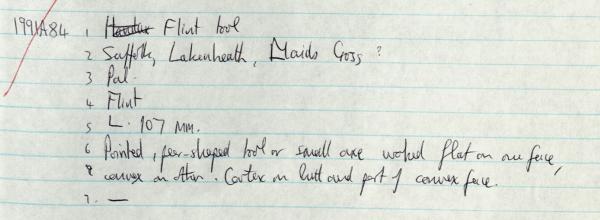 1991A84 1 Flint tool
2 Suffolk, Lakenheath, Maids Cross ?
3 Pal.
4 Flint
5 L. 107 mm.
6 Pointed, pear-shaped tool or small axe worked flat on one face,
convex on other. Cortex on butt and part of convex face.
7. —